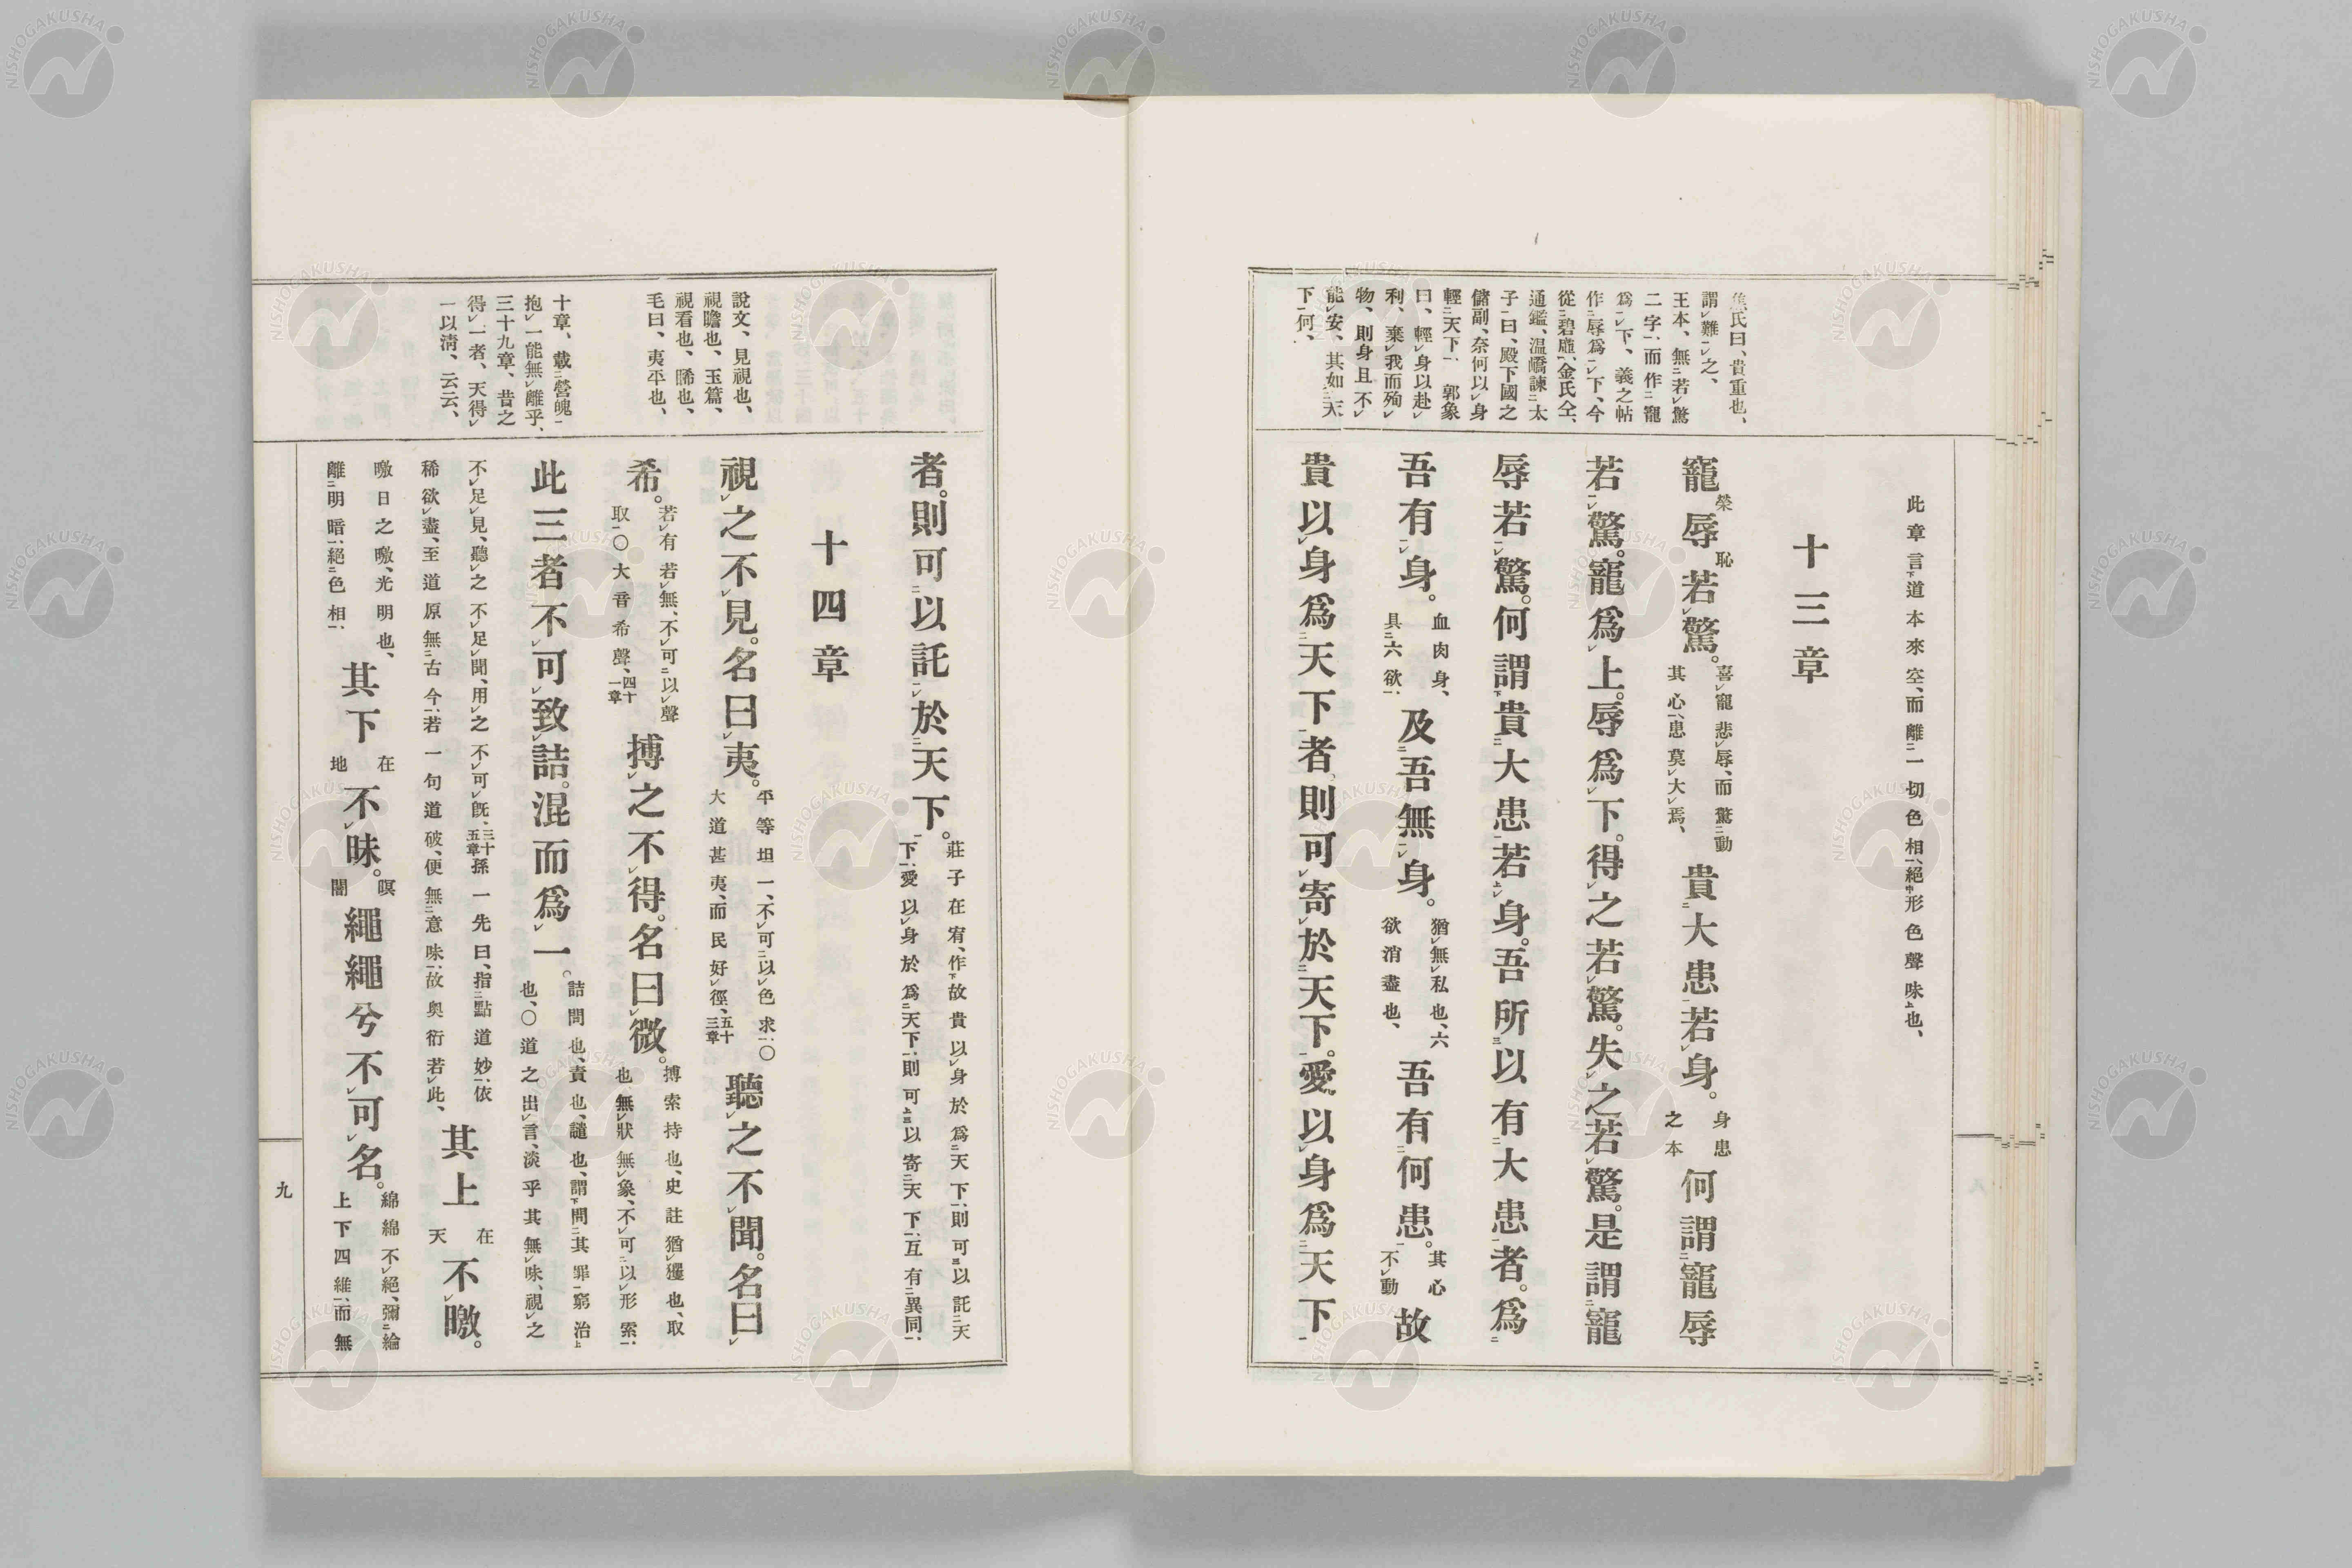 焦氏曰、貴重也、
謂難之、
王本、無若驚
二字、而作寵
爲下、義之帖
作辱爲下、今
從碧虛、金氏仝、
通鑑、温嶠諫太
子曰、殿下國之
儲副、奈何以身
輕天下、郭象
曰、輕身以赴
利、棄我而殉
物、則身且不
能安、其如天
下何、
此章言道本來空、而離一切色相、絕形色聲味也、
十三章
寵榮辱恥若驚。喜寵悲辱、而驚動其心、患莫大焉、貴大患若身。身患之本何謂寵辱
若驚。寵爲上。辱爲下。得之若驚。失之若驚。是謂寵
辱若驚。何謂貴大患若身。吾所以有大患者。爲
吾有身。血肉身、具六欲、及吾無身。猶無私也、六欲消盡也、吾有何患。其心不動故
貴以身爲天下者、則可寄於天下。愛以身爲天下
說文、見視也、
視瞻也、玉篇、
視看也、睎也、
毛曰、夷平也、
十章、載營魄
抱一能無離乎、
三十九章、昔之
得一者、天得
一以淸、云云、
者。則可以託於天下。莊子在宥、作故貴以身於爲天下、則可以託天下、愛以身於爲天下、則可以寄天下、互有異同、
十四章
視之不見。名曰夷。平等坦一、不可以色求、○大道甚夷、而民好徑、五十三章聽之不聞。名曰
希。若有若無、不可以聲取、○大音希聲、四十一章搏之不得。名曰微。搏索持也、史註猶攫也、取也、無狀無象、不可以形索、
此三者不可致詰。混而爲一。詰問也、責也、譴也、謂問其罪窮治也、○道之出言、淡乎其無味、視之
不足見、聽之不足聞、用之不可旣、三十五章孫一先曰、指點道妙、依稀欲盡、至道原無古今、若一句道破、便無意味、故奧衍若此、其上在天不曒。
曒日之曒、光明也、離明暗、絕色相、其下在地不昧。暝闇繩繩兮不可名。綿綿不絕、彌綸上下四維、而無
九